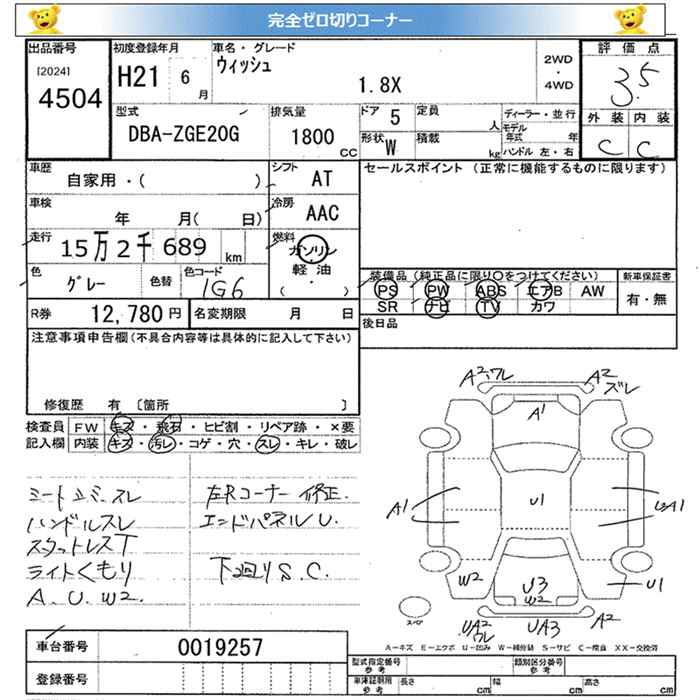 完全ゼロ切りコーナー
出品番号
[2024]
4504
初度登録年月
H21 6月
車名・グレード
ウィッシュ
1.8X
2WD
・
4WD
評価点
3.5
外装 内装
C C
型式
DBA-ZGE20G
排気量
1800 CC
ドア 5
定員 人
形状 W
積載 kg
ディーラー・並行
モデル年式 年
ハンドル 左・右
車歴
自家用・( )
シフト AT
車検
年 月( 日)
冷房 AAC
走行
15万2千689 km
燃料
ガソリン
軽油
( ・ )
色
グレー
色替
色コード
1G6
R券 12,780円
名変期限 月 日
セールスポイント (正常に機能するものに限ります)
装備品(純正品に限り○をつけてください)
PS PW ABS エアB AW
SR ナビ TV カワ
新車保証書
有・無
後日品
注意事項申告欄(不具合内容等は具体的に記入して下さい)
修復歴 有 〔箇所 〕
検査員記入欄
FW キズ・飛石・ヒビ割・リペア跡・×要
内装 キズ・汚レ・コゲ・穴・スレ・キレ・破レ
シート立ミミスレ
ハンドルスレ
スタットレスT
ライトくもり
A.U.W2.
左Rコーナー修正.
エンドパネルU.
下廻りS.C.
A2.ワレ
A2
ズレ
A1
A1
U1
UA1
W2
U3
W2
U1
UA2
ワレ
UA3
A2
スペア
A-キズ E-エクボ U-凹み W-補修跡 S-サビ C-腐食 XX-交換済
車台番号
0019257
登録番号
型式指定番号
参考
類別区分番号
参考
車庫証明用
参考
長さ cm
幅 cm
高さ cm